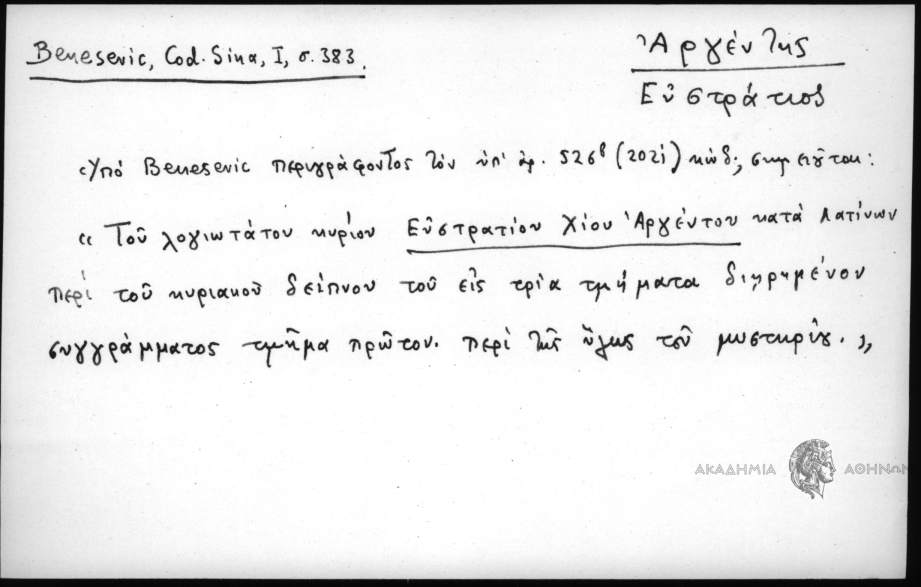 Benesevic, Cod. Sina, I, σ. 383.
Ἀργέντης
Εὐστράτιος
Ὑπό Benesevic περιγράφοντος τόν ὑπ' ἀρ. 526β (2021) κώδ., σημειοῦται:
« Τοῦ λογιωτάτου κυρίου Εὐστρατίου Χίου Ἀργέντου κατά Λατίνων
περί τοῦ κυριακοῦ δείπνου τοῦ εἰς τρία τμήματα διῃρημένου
συγγράμματος τμῆμα πρῶτον. περί τῆς ὕλης τοῦ μυστηρίου. »
ΑΚΑΔΗΜΙΑ ΑΘΗΝΩΝ